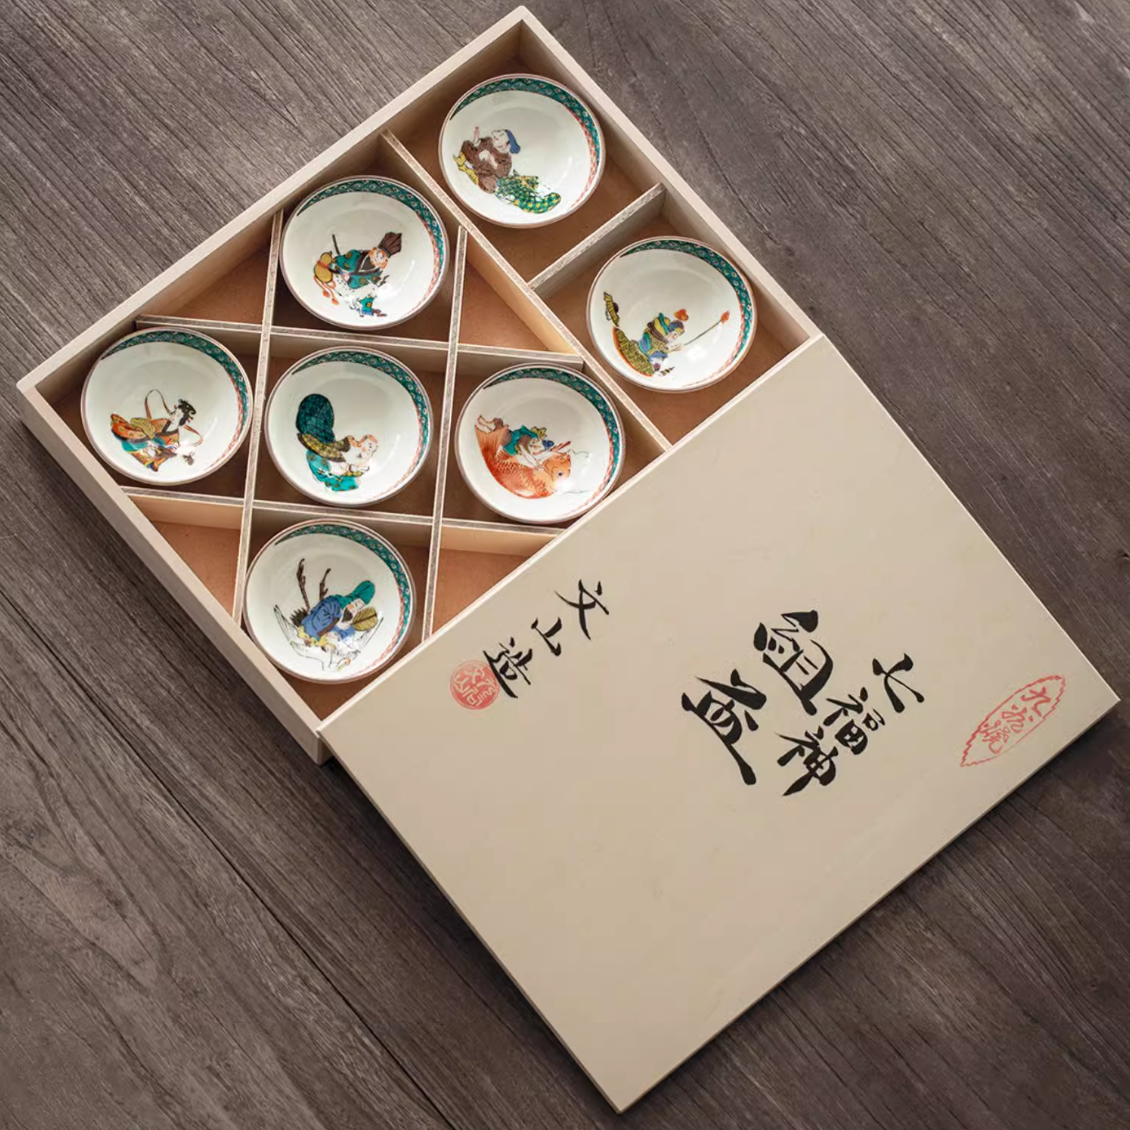 九谷焼
七福神
組盃
文山造